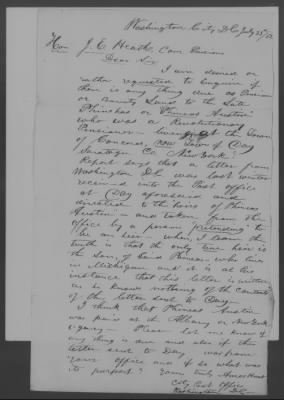 Washington City, D.C. July 25/52
Hon J. E. Heath, Com Pensions
Dear Sir
I am desired or
rather requested to enquire if
there is any thing due as Pension
or Bounty Land to the late
Phinehas or Phineas Austin
who was a Revolutionary
Pensioner living at the Town
of Concord, now Town of Day
Saratoga Co New York?
Report says that a letter from
Washington D.C. was last winter
received into the Post office
at (Day aforesaid and
directed to the heirs of Phineas
Austin — and taken from the
office by a person pretending to
be an heir — when, I learn the
truth is that the only true heir is
the Son, of said Phineas who lives
in Michigan and it is at his
instance that this letter is written
as he knows nothing of the contents
of the letter sent to Day.
I think that Phineas Austin
was paid at the Albany or New York
Agency — Please let me know if
any thing is due and also if the
letter sent to Day was from
your office and if so what was
its purport? Yours truly
City Post Office
Washington D.C.